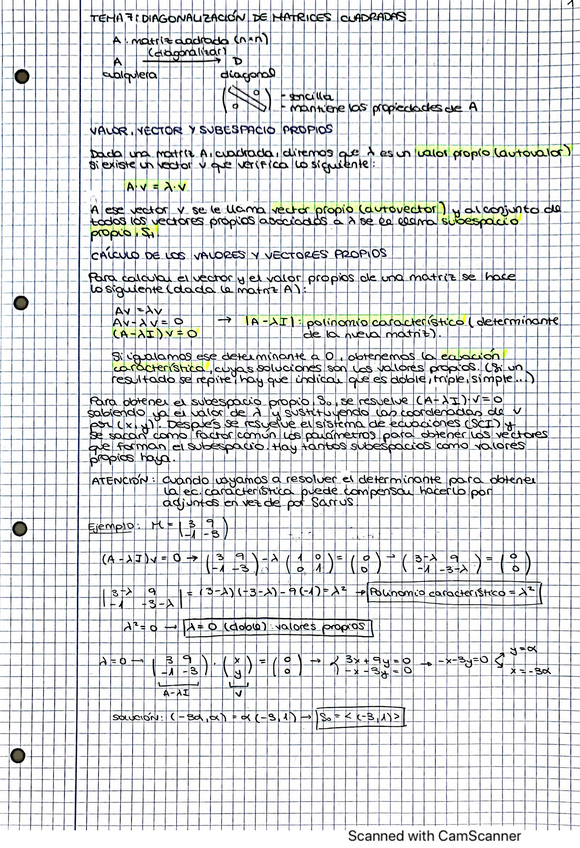 1
TEMA 7: DIAGONALIZACIÓN DE MATRICES CUADRADAS
A: matriz cuadrada (n×n)
(diagonalizar)
A → D
cualquiera diagonal
- sencilla
- mantiene las propiedades de A
VALOR, VECTOR Y SUBESPACIO PROPIOS
Dada una matriz A, cuadrada, diremos que λ es un valor propio (autovalor)
si existe un vector v que verifica lo siguiente:
A·v = λ·v
A ese vector v se le llama vector propio (autovector) y al conjunto de
todos los vectores propios asociados a λ se le llama subespacio
propio,
CÁLCULO DE LOS VALORES Y VECTORES PROPIOS
Para calcular el vector y el valor propios de una matriz se hace
lo siguiente (dada la matriz A):
Av = λv
Av - λv = 0 → |A-λI|: polinomio característico (determinante
(A-λI)v = 0 de la nueva matriz).
Si igualamos ese determinante a 0, obtenemos la ecuación
característica, cuyas soluciones son los valores propios. (Si un
resultado se repite, hay que indicar que es doble, triple, simple...)
Para obtener el subespacio propio, S₀, se resuelve (A-λI)·v=0
sabiendo ya el valor de λ y sustituyendo las coordenadas de v
por (x,y). Después se resuelve el sistema de ecuaciones (SCI) y
se sacan como factor común los parámetros para obtener los vectores
que forman el subespacio. Hay tantos subespacios como valores
propios haya.
ATENCIÓN: cuando vayamos a resolver el determinante para obtener
la ec. característica puede compensar hacerlo por
adjuntos en vez de por Sarrus.
Ejemplo: M = (3 9
-1 -3)
(A-λI)v = 0 → (3 9 -1 -3) - λ (1 0 0 1) = (0 0) → (3-λ 9 -1 -3-λ) = (0 0)
|3-λ 9 -1 -3-λ| = (3-λ)(-3-λ) - 9(-1) = λ² → Polinomio característico = λ²
λ² = 0 → λ = 0 (doble): valores propios
λ=0 → (3 9 -1 -3) · (x y) = (0 0) → { 3x+9y=0 -x-3y=0 → -x-3y=0 < y=α x=-3α
A-λI v
SOLUCIÓN: (-3α, α) = α(-3, 1) → S₀ = <(-3,1)>
Scanned with CamScanner